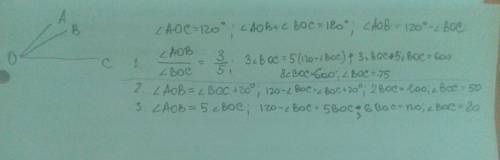 A
B
O
C
∠AOC=120°; ∠AOB+∠BOC=180°; ∠AOB=120°-∠BOC
1. ∠AOB/∠BOC = 3/5; 3∠BOC=5(120-∠BOC); 3∠BOC+5∠BOC=600
8∠BOC=600; ∠BOC=75
2. ∠AOB=∠BOC+20°; 120-∠BOC=∠BOC+20°; 2BOC=100; ∠BOC=50
3. ∠AOB=5∠BOC; 120-∠BOC=5BOC; 6BOC=120; ∠BOC=20